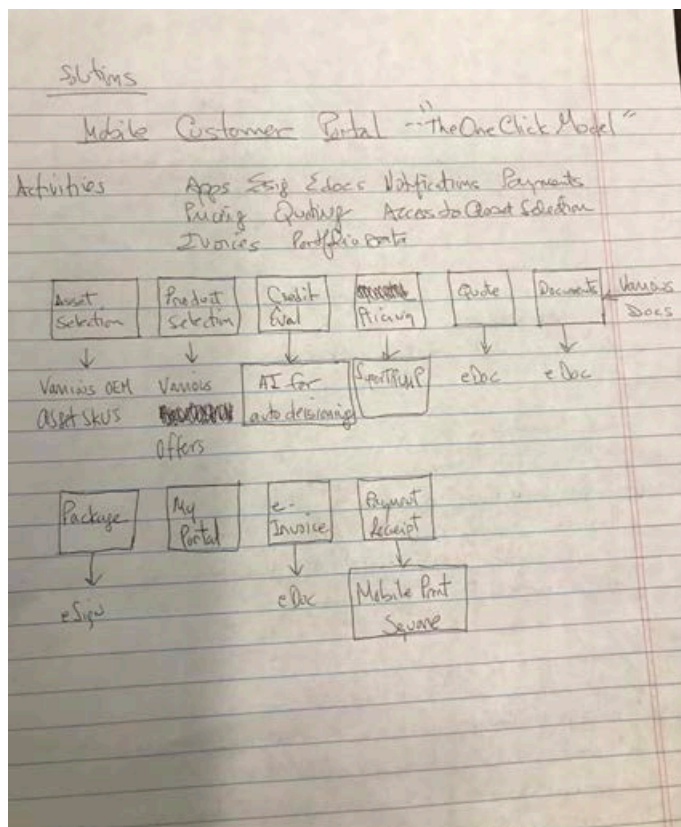 Solutions
Mobile Customer Portal -- "The One Click Model"
Activities Apps Esig Edocs Notifications Payments
Pricing Quoting Access to Asset Selection
Ivoices Portfolio
Asset Selection
Product Selection
Credit Eval
Pricing
Quote
Documents
Various Docs
Various OEM asset SKUS
Various Offers
AI for auto decisioning
eDoc
eDoc
Package
My Portal
e-Invoice
Payment Receipt
eSign
eDoc
Mobile Square